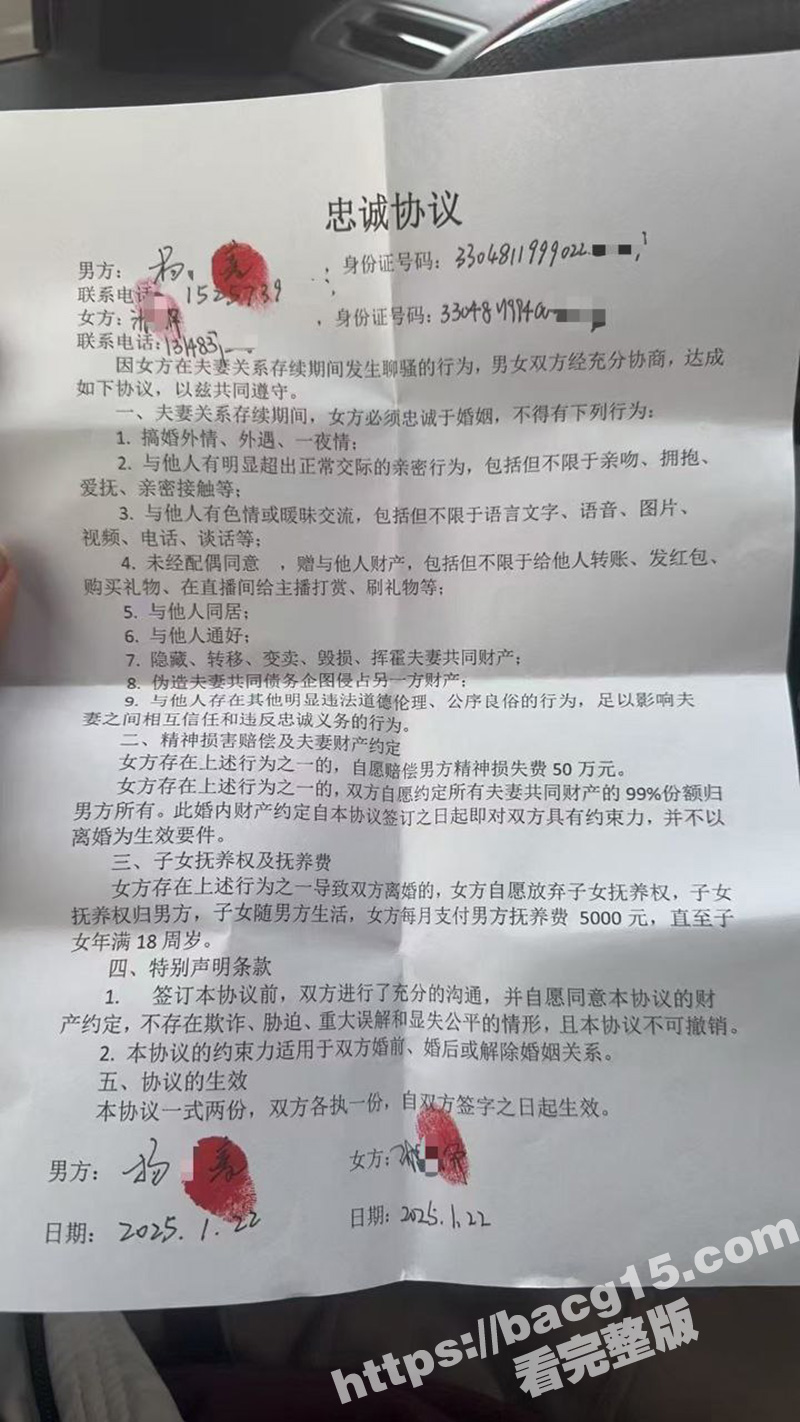 忠诚协议
男方：杨 身份证号码：3304811999022
联系电话 1525739
女方： ，身份证号码：
联系电话:131483
因女方在夫妻关系存续期间发生聊骚的行为，男女双方经充分协商，达成
如下协议，以兹共同遵守。
一、夫妻关系存续期间，女方必须忠诚于婚姻，不得有下列行为：
1. 搞婚外情、外遇、一夜情；
2. 与他人有明显超出正常交际的亲密行为，包括但不限于亲吻、拥抱、
爱抚、亲密接触等；
3. 与他人有色情或暧昧交流，包括但不限于语言文字、语音、图片、
视频、电话、谈话等；
4. 未经配偶同意 ，赠与他人财产，包括但不限于给他人转账、发红包、
购买礼物、在直播间给主播打赏、刷礼物等；
5. 与他人同居；
6. 与他人通奸；
7. 隐藏、转移、变卖、毁损、挥霍夫妻共同财产；
8. 伪造夫妻共同债务企图侵占另一方财产；
9. 与他人存在其他明显违法道德伦理、公序良俗的行为，足以影响夫
妻之间相互信任和违反忠诚义务的行为。
二、精神损害赔偿及夫妻财产约定
女方存在上述行为之一的，自愿赔偿男方精神损失费 50 万元。
女方存在上述行为之一的，双方自愿约定所有夫妻共同财产的 99%份额归
男方所有。此婚内财产约定自本协议签订之日起即对双方具有约束力，并不以
离婚为生效要件。
三、子女抚养权及抚养费
女方存在上述行为之一导致双方离婚的，女方自愿放弃子女抚养权，子女
抚养权归男方，子女随男方生活，女方每月支付男方抚养费 5000 元，直至子
女年满 18 周岁。
四、特别声明条款
1. 签订本协议前，双方进行了充分的沟通，并自愿同意本协议的财
产约定，不存在欺诈、胁迫、重大误解和显失公平的情形，且本协议不可撤销。
2. 本协议的约束力适用于双方婚前、婚后或解除婚姻关系。
五、协议的生效
本协议一式两份，双方各执一份，自双方签字之日起生效。
男方：杨 女方：
日期：2025.1.22 日期：2025.1.22
https://bacg15.com
看完整版